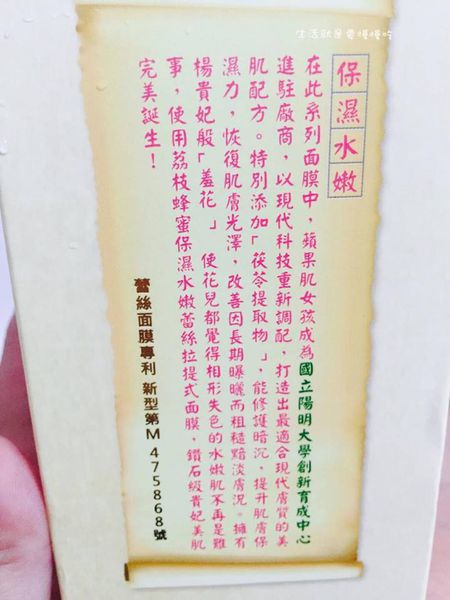 生活就是要慢慢吟
保濕水嫩
在此系列面膜中，蘋果肌女孩成為國立陽明大學創新育成中心
進駐廠商，以現代科技重新調配，打造出最適合現代膚質的美
肌配方。特別添加「茯苓提取物」，能修護暗沉，提升肌膚保
濕力，恢復肌膚光澤，改善因長期曝曬而粗糙黯淡膚況。擁有
楊貴妃般「羞花」 使花兒都覺得相形失色的水嫩肌不再是難
事，使用荔枝蜂蜜保濕水嫩蕾絲拉提式面膜，鑽石級貴妃美肌
完美誕生！
蕾絲面膜專利 新型第M 475868號